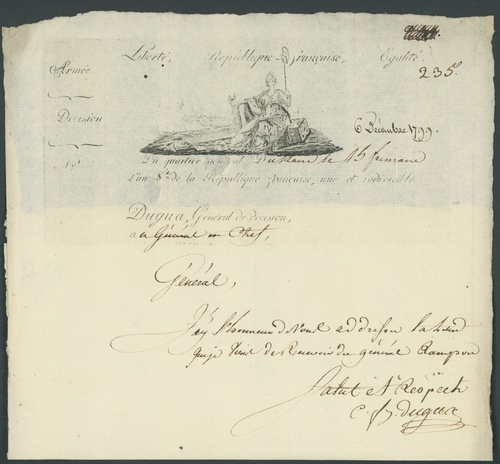 Liberté, République Française, Egalité.
235.
Armée
Division
6 Décembre 1799.
Nº
Du quartier général du Kaire le 15 frimaire
l'an 8.e de la République française, une et indivisible
Dugua, Général de division,
au Général en Chef,
Général,
J'ai l'honneur de vous adresser la lettre
que je viens de Recevoir du général Rampon
Salut et Respect
C. f. Dugua